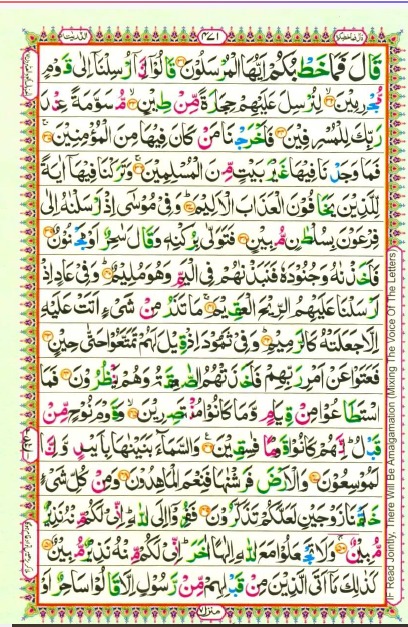 ٤٧١
قَالَ فَمَا خَطْبُكُمْ اَيُّهَا الْمُرْسَلُوْنَ ۝٣١ قَالُوْٓا اِنَّآ اُرْسِلْنَآ اِلٰى قَوْمٍ
مُّجْرِمِيْنَ ۝٣٢ لِنُرْسِلَ عَلَيْهِمْ حِجَارَةً مِّنْ طِيْنٍ ۝٣٣ مُّسَوَّمَةً عِنْدَ
رَبِّكَ لِلْمُسْرِفِيْنَ ۝٣٤ فَاَخْرَجْنَا مَنْ كَانَ فِيْهَا مِنَ الْمُؤْمِنِيْنَ ۝٣٥
فَمَا وَجَدْنَا فِيْهَا غَيْرَ بَيْتٍ مِّنَ الْمُسْلِمِيْنَ ۝٣٦ وَتَرَكْنَا فِيْهَآ اٰيَةً
لِّلَّذِيْنَ يَخَافُوْنَ الْعَذَابَ الْاَلِيْمَ ۝٣٧ وَفِيْ مُوْسٰٓى اِذْ اَرْسَلْنٰهُ اِلٰى
فِرْعَوْنَ بِسُلْطٰنٍ مُّبِيْنٍ ۝٣٨ فَتَوَلّٰى بِرُكْنِهٖ وَقَالَ سٰحِرٌ اَوْ مَجْنُوْنٌ ۝٣٩
فَاَخَذْنٰهُ وَجُنُوْدَهٗ فَنَبَذْنٰهُمْ فِي الْيَمِّ وَهُوَ مُلِيْمٌ ۝٤٠ وَفِيْ عَادٍ اِذْ
اَرْسَلْنَا عَلَيْهِمُ الرِّيْحَ الْعَقِيْمَ ۝٤١ مَا تَذَرُ مِنْ شَيْءٍ اَتَتْ عَلَيْهِ
اِلَّا جَعَلَتْهُ كَالرَّمِيْمِ ۝٤٢ وَفِيْ ثَمُوْدَ اِذْ قِيْلَ لَهُمْ تَمَتَّعُوْا حَتّٰى حِيْنٍ ۝٤٣
فَعَتَوْا عَنْ اَمْرِ رَبِّهِمْ فَاَخَذَتْهُمُ الصّٰعِقَةُ وَهُمْ يَنْظُرُوْنَ ۝٤٤ فَمَا
اسْتَطَاعُوْا مِنْ قِيَامٍ وَّمَا كَانُوْا مُنْتَصِرِيْنَ ۝٤٥ وَقَوْمَ نُوْحٍ مِّنْ
قَبْلُ اِنَّهُمْ كَانُوْا قَوْمًا فٰسِقِيْنَ ۝٤٦ وَالسَّمَآءَ بَنَيْنٰهَا بِاَيْىدٍ وَّاِنَّا
لَمُوْسِعُوْنَ ۝٤٧ وَالْاَرْضَ فَرَشْنٰهَا فَنِعْمَ الْمَاهِدُوْنَ ۝٤٨ وَمِنْ كُلِّ شَيْءٍ
خَلَقْنَا زَوْجَيْنِ لَعَلَّكُمْ تَذَكَّرُوْنَ ۝٤٩ فَفِرُّوْٓا اِلَى اللّٰهِ اِنِّيْ لَكُمْ مِّنْهُ نَذِيْرٌ
مُّبِيْنٌ ۝٥٠ وَلَا تَجْعَلُوْا مَعَ اللّٰهِ اِلٰهًا اٰخَرَ اِنِّيْ لَكُمْ مِّنْهُ نَذِيْرٌ مُّبِيْنٌ ۝٥١
كَذٰلِكَ مَآ اَتَى الَّذِيْنَ مِنْ قَبْلِهِمْ مِّنْ رَّسُوْلٍ اِلَّا قَالُوْا سَاحِرٌ اَوْ
منزل٧
IF Read Jointly, There Will Be Amalgamation (Mixing The Voice Of The Letters)